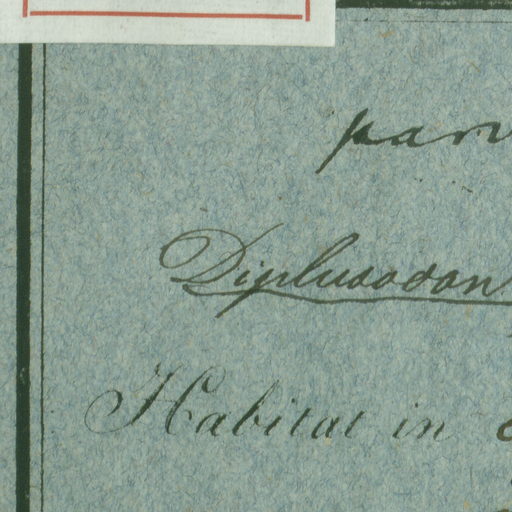 parv
Diplusodon
Habitat in